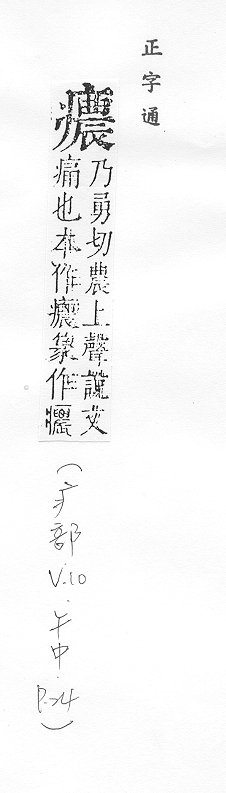 正字通
癑
乃勇切農上聲說文
痛也本作癑篆作癑
(疒部 V.10 午中 P.24)